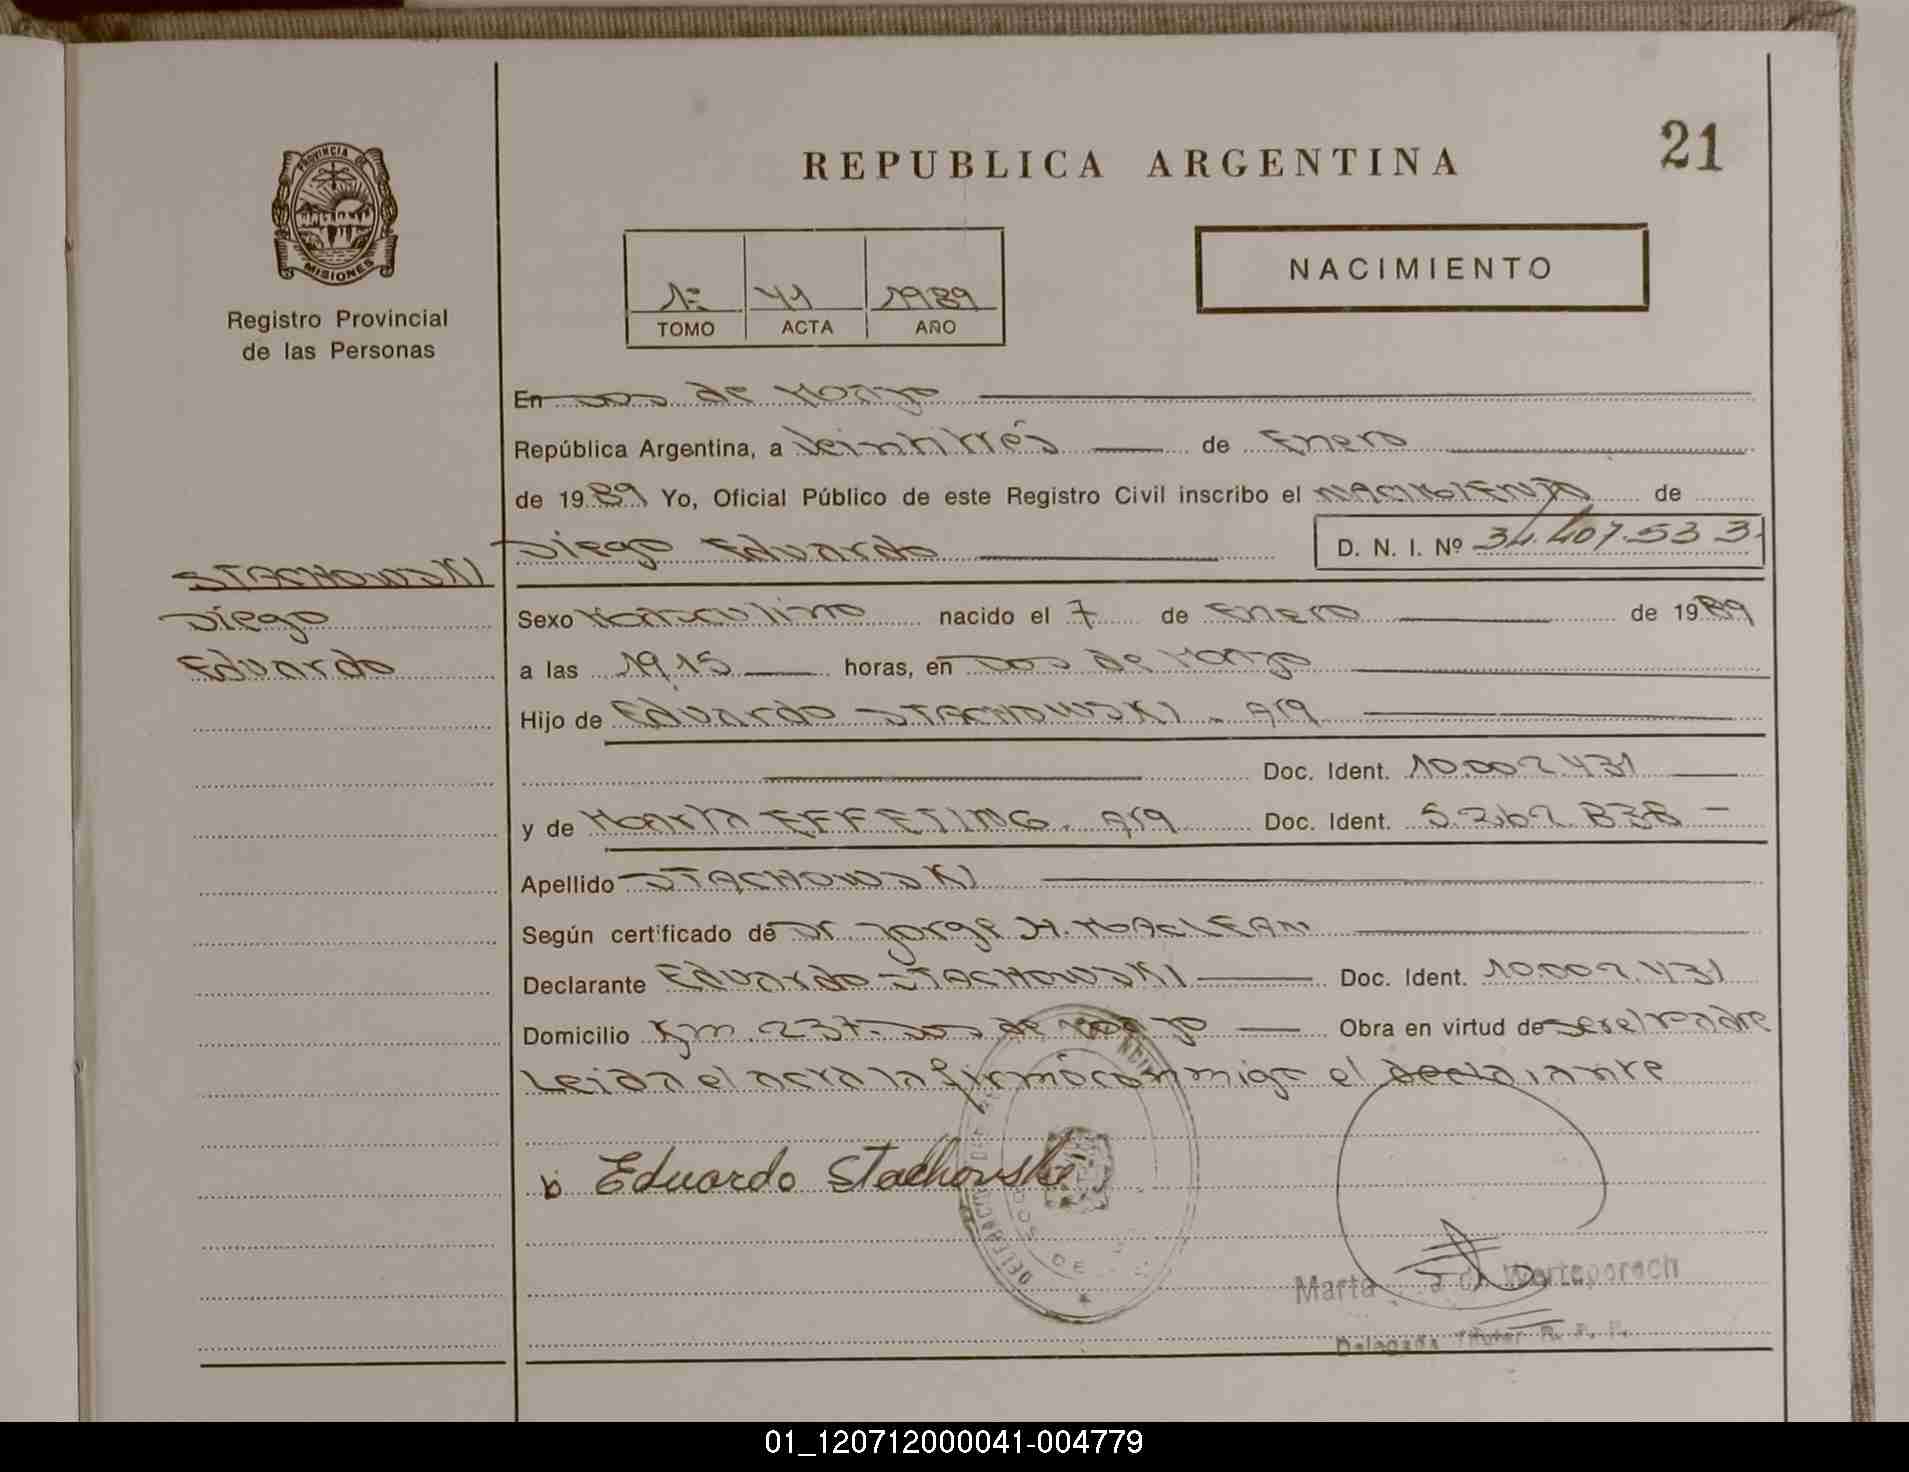 21
REPUBLICA ARGENTINA
PROVINCIA DE
MISIONES
Registro Provincial
de las Personas
NACIMIENTO
1º 41 1989
TOMO ACTA AÑO
En Dos de Mayo
República Argentina, a Veintitrés de Enero
de 1989 Yo, Oficial Público de este Registro Civil inscribo el NACIMIENTO de
Diego Eduardo D. N. I. Nº 34.407.533
STACHOWSKI
Diego
Eduardo
Sexo Masculino nacido el 7 de Enero de 1989
a las 19,15 horas, en Dos de Mayo
Hijo de Eduardo STACHOWSKI - Arg
Doc. Ident. 10.002.431
y de Marta EFFETING. Arg Doc. Ident. 5.262.838 -
Apellido STACHOWSKI
Según certificado de Dr Jorge H. MACLEAN
Declarante Eduardo STACHOWSKI Doc. Ident. 10.002.431
Domicilio Km. 237-Dos de Mayo Obra en virtud de ser el padre
Leida el acta la firmó conmigo el declarante
Eduardo Stachovski
DOS DE
Marta de Werteporoch
Delegada Titular R. P. P.
01_120712000041-004779